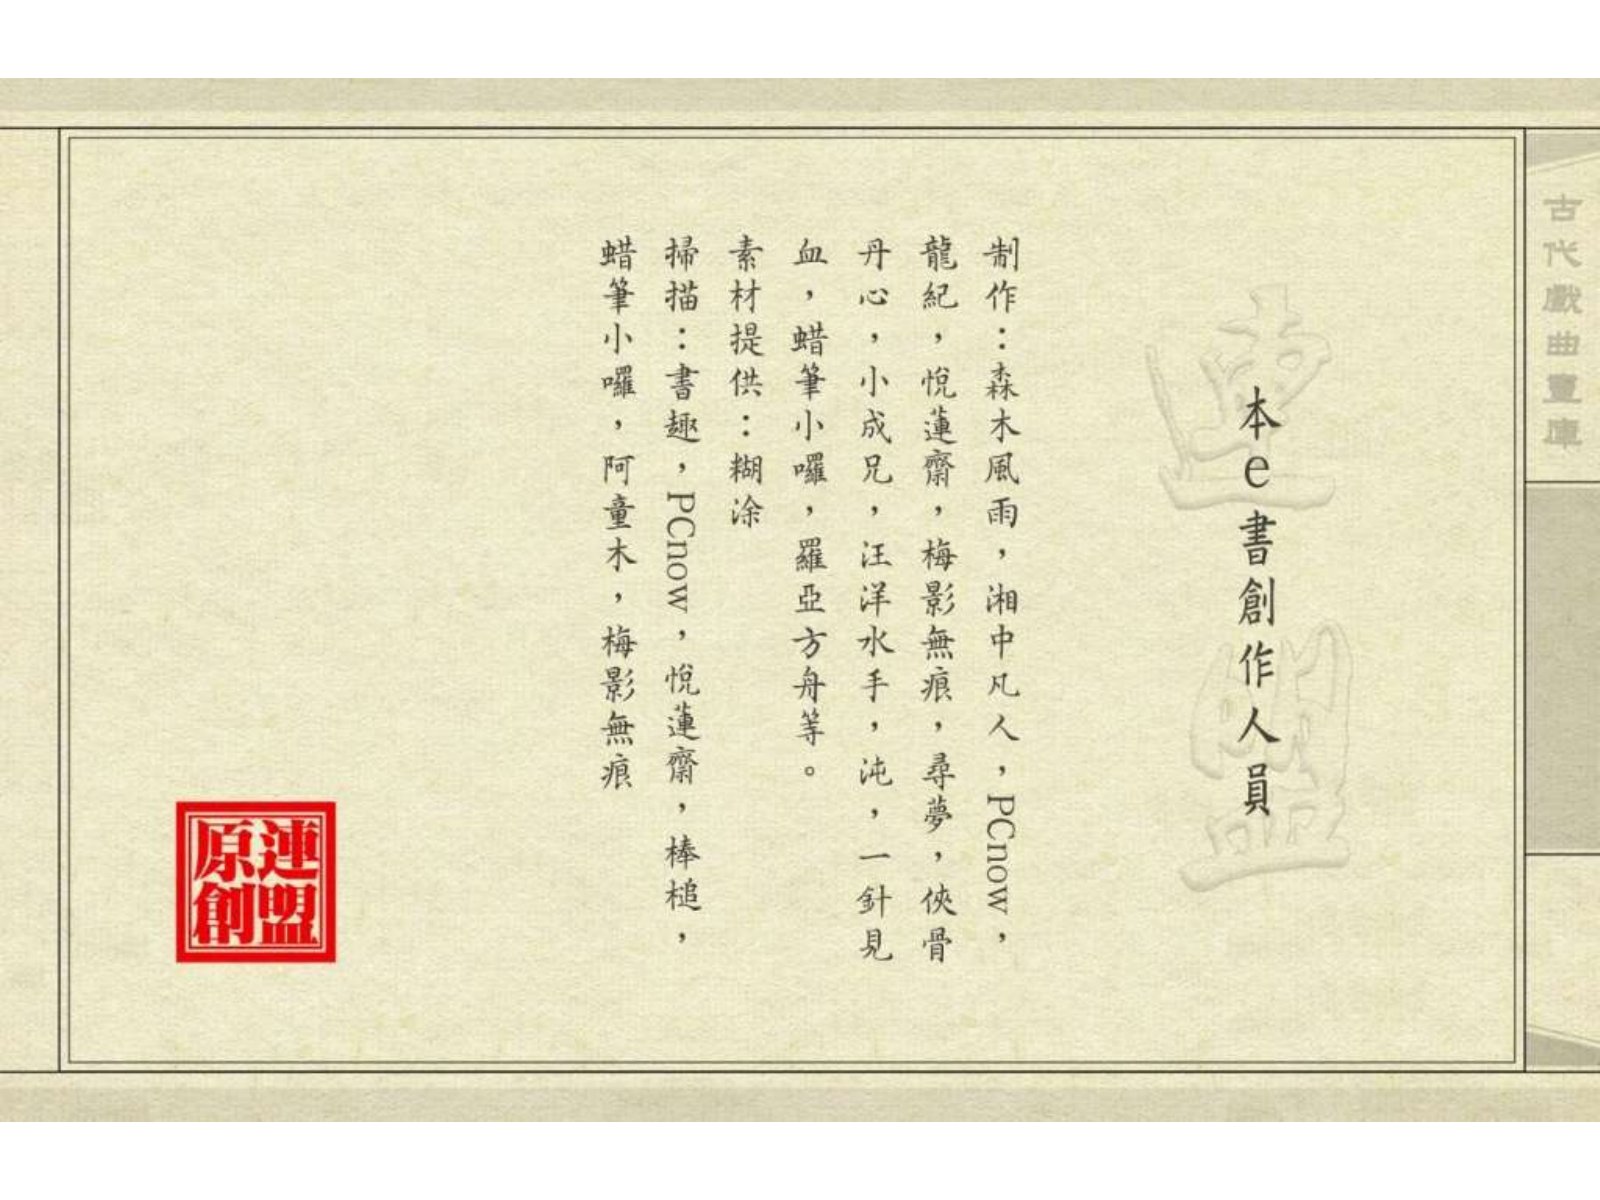 古代戲曲寶庫
連盟
本e書創作人員
制作：森木風雨，湘中凡人，PCnow，
龍紀，悅蓮齋，梅影無痕，尋夢，俠骨
丹心，小成兄，汪洋水手，沌，一針見
血，蜡筆小囉，羅亞方舟等。
素材提供：糊涂
掃描：書趣，PCnow，悅蓮齋，棒槌，
蜡筆小囉，阿童木，梅影無痕
連盟
原創